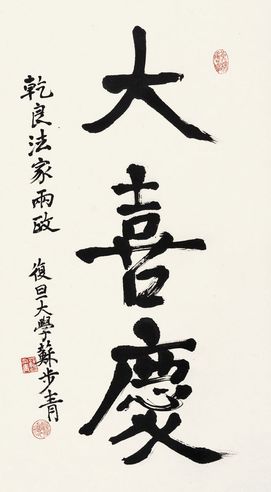 大喜慶
乾良法家兩政
復旦大學蘇步青